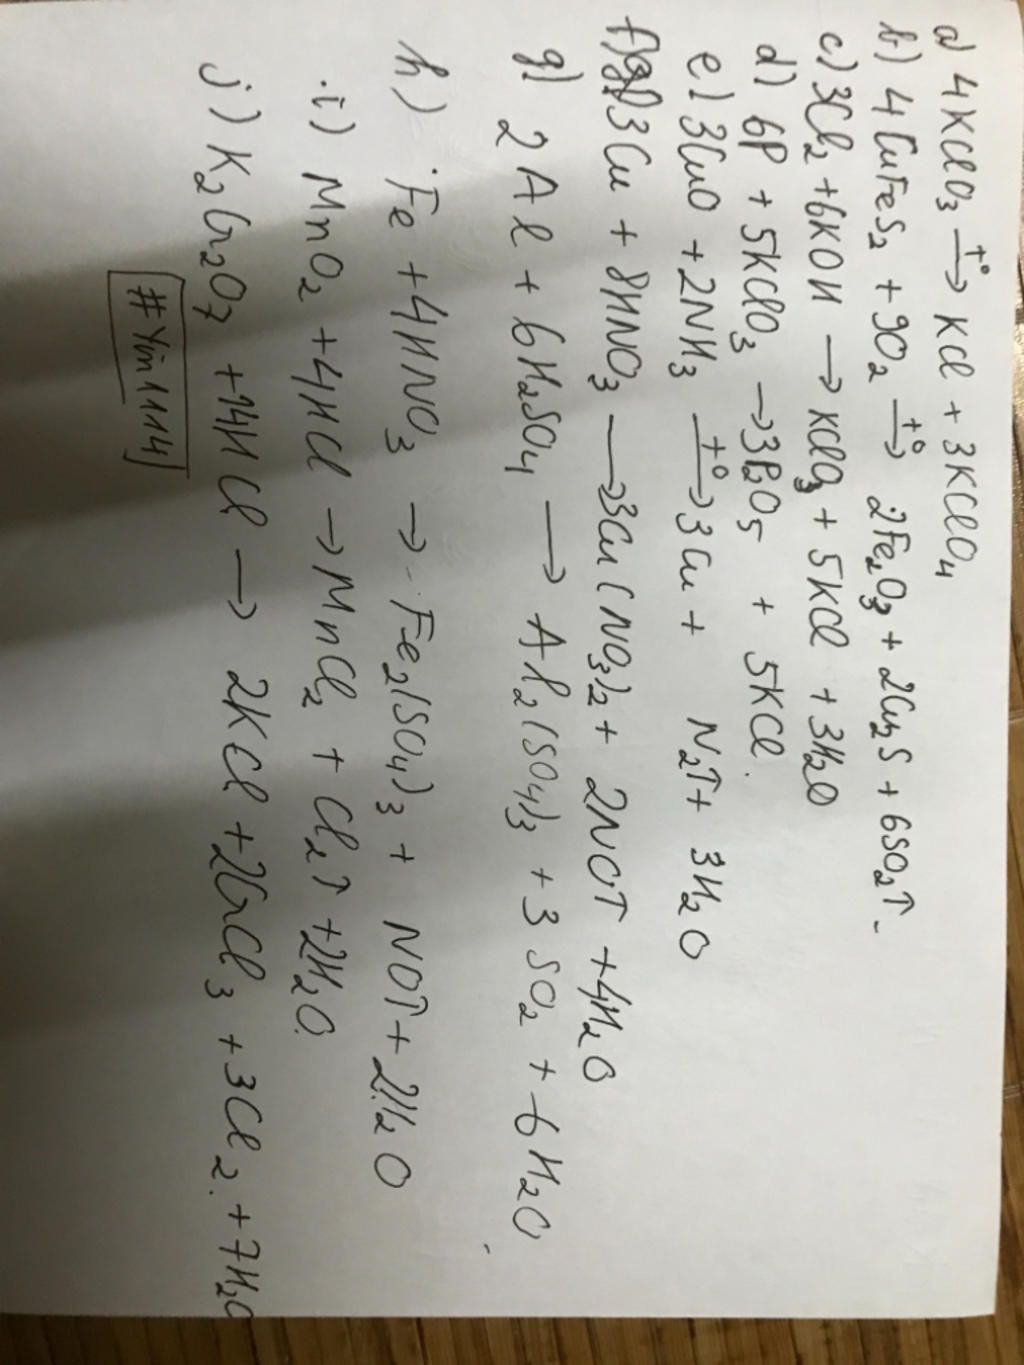 a) 4KClO3 —t°→ KCl + 3KClO4
b) 4CuFeS2 + 9O2 —t°→ 2Fe2O3 + 2Cu2S + 6SO2↑
c) 3Cl2 + 6KOH → KClO3 + 5KCl + 3H2O
d) 6P + 5KClO3 → 3P2O5 + 5KCl.
e) 3CuO + 2NH3 —t°→ 3Cu + N2↑ + 3H2O
f) 3Cu + 8HNO3 → 3Cu(NO3)2 + 2NO↑ + 4H2O
g) 2Al + 6H2SO4 → Al2(SO4)3 + 3SO2 + 6H2O
h) Fe + 4HNO3 → Fe2(SO4)3 + NO↑ + 2H2O
i) MnO2 + 4HCl → MnCl2 + Cl2↑ + 2H2O
j) K2Cr2O7 + 14HCl → 2KCl + 2CrCl3 + 3Cl2 + 7H2O
#Yin1114